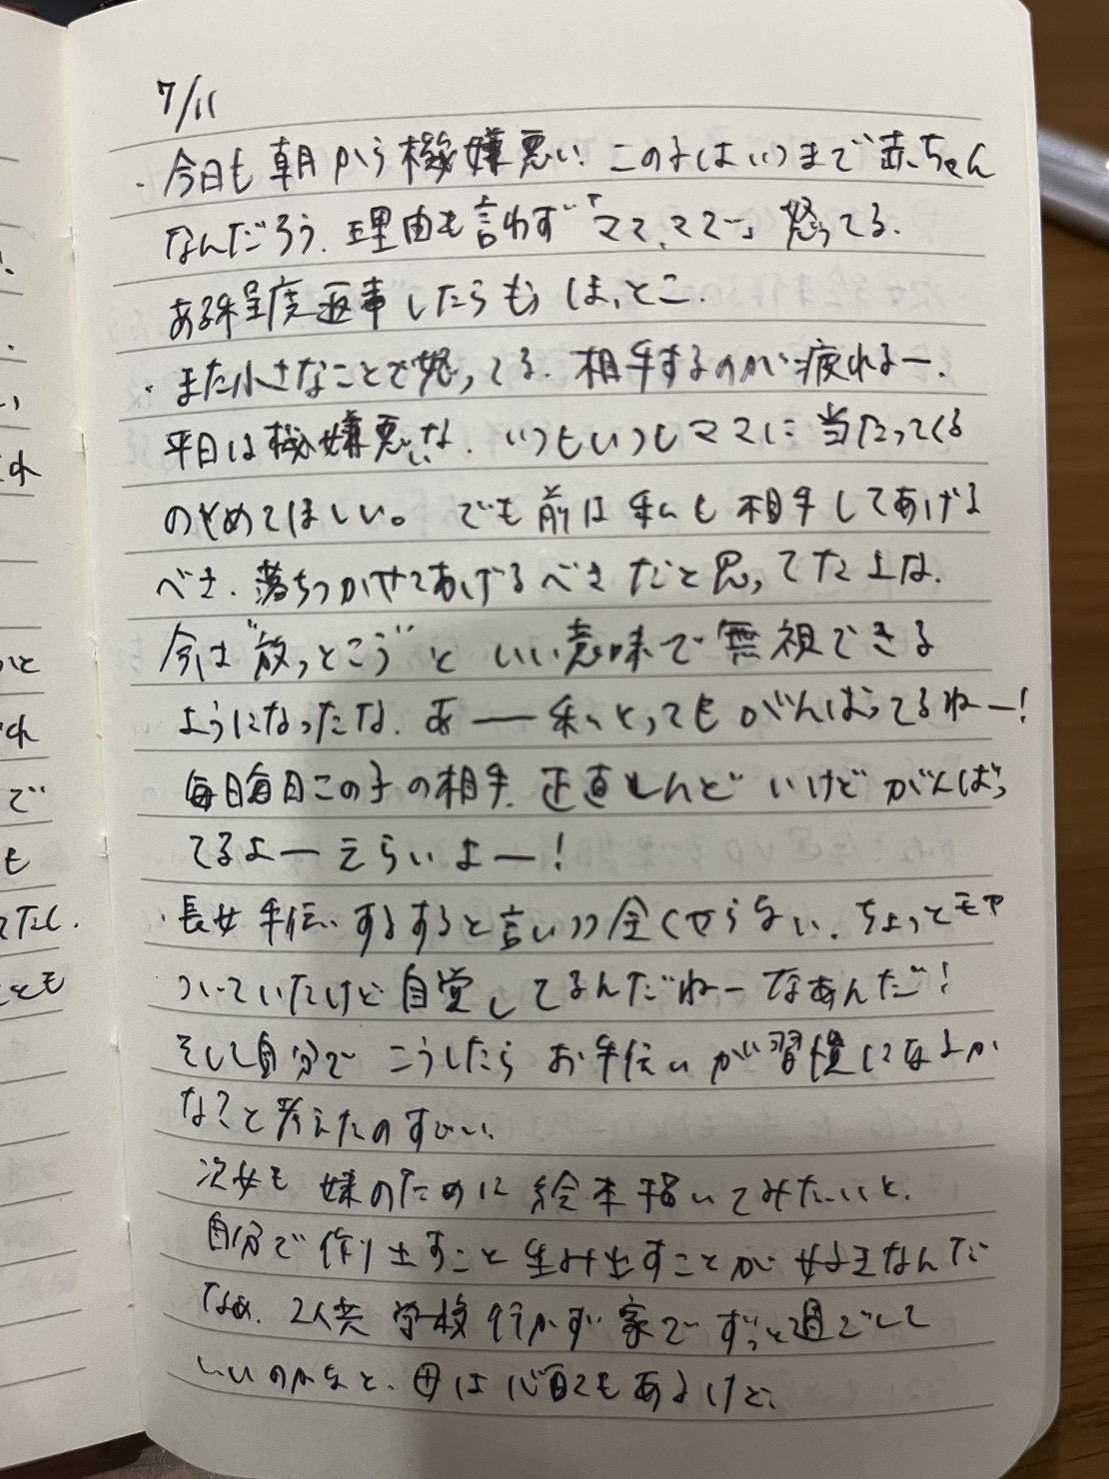 7/11
・今日も朝から機嫌悪い。この子はいつまで赤ちゃん
なんだろう。理由も言わず「ママ、ママー」怒ってる。
ある程度返事したらもうほっとこ。
・また小さなことで怒ってる。相手するのが疲れるー。
平日は機嫌悪いな。いつもいつもママに当たってくる
のやめてほしい。でも前は私も相手してあげる
べき、落ちつかせてあげるべきだと思ってたよな。
今は"放っとこう"といい意味で無視できる
ようになったな。あー私とってもがんばってるねー!
毎日毎日この子の相手。正直しんどいけどがんばっ
てるよーえらいよー!
・長女手伝いするすると言いつつ全くやらない。ちょっとモヤ
ついていたけど自覚してるんだねーなあんだ!
そして自分でこうしたらお手伝いが習慣になるか
な?と考えたのすごい。
次女も妹のために絵本描いてみたいと。
自分で作り出すこと生み出すことが好きなんだ
なぁ。2人共学校行かず家でずっと過ごして
いいのかなと、母は心配もあるけど、
と
ママ
れ
で
も
てたし。
とも